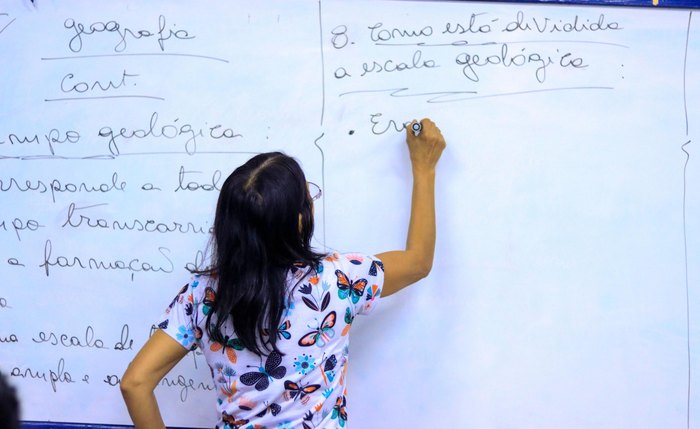 geografia
Cont.
empo geológico :
rresponde a tod
mpo transcorri
a formação d
a
ma escala de
ampla e
8. Como está dividida
a escala geológica :
. Era